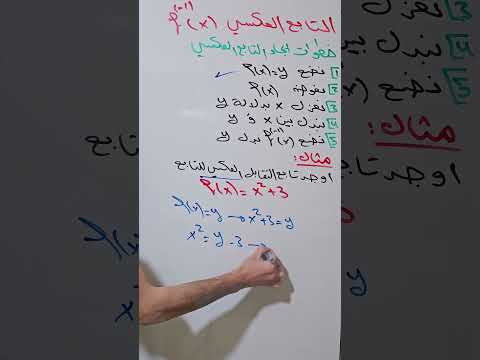 التابع العكسي f⁽⁻¹⁾(x)
خطوات ايجاد التابع العكسي
1 نضع f(x)=y ✓
2 نعوض f(x)
3 نعزل x بدلالة y
4 نبدل بين x و y
5 نضع f⁽⁻¹⁾(x) بدل y
مثال:
اوجد تابع التقابل العكسي للتابع
f(x)=x²+3
f(x)=y → x²+3=y
x²=y-3 →